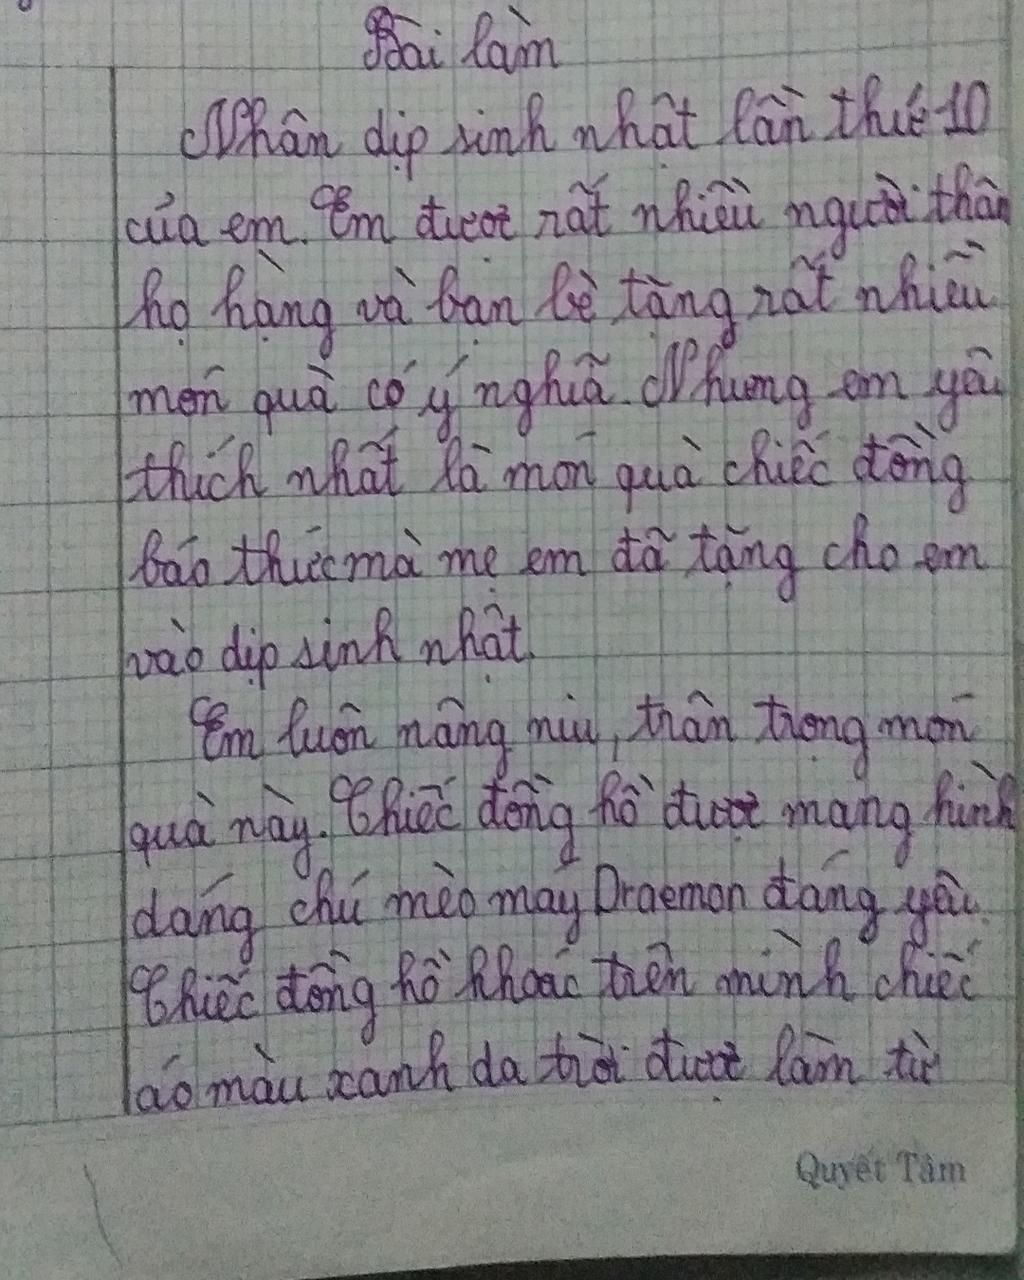 Bài làm
Nhân dịp sinh nhật lần thứ 10
của em. Em được rất nhiều người thân
họ hàng và bạn bè tặng rất nhiều
món quà có ý nghĩa. Nhưng em yêu
thích nhất là món quà chiếc đồng
báo thức mà mẹ em đã tặng cho em
vào dịp sinh nhật.
Em luôn nâng niu, trân trọng món
quà này. Chiếc đồng hồ được mang hình
dáng chú mèo máy Draemon đáng yêu.
Chiếc đồng hồ khoác trên mình chiếc
áo màu xanh da trời được làm từ
Quyết Tâm